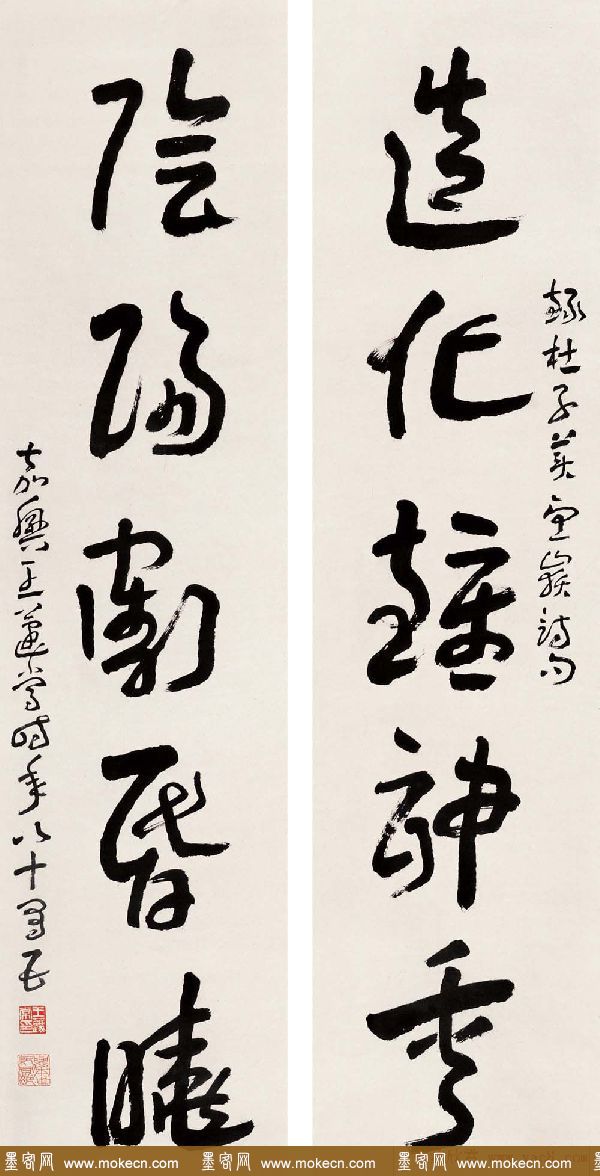 錄杜子美望嶽詩句
造化鍾神秀
陰陽割昏曉
嘉興王蘧常時年八十五
墨客网 www.mokecn.com 墨客网 www.mokecn.com 墨客网 www.mokecn.com